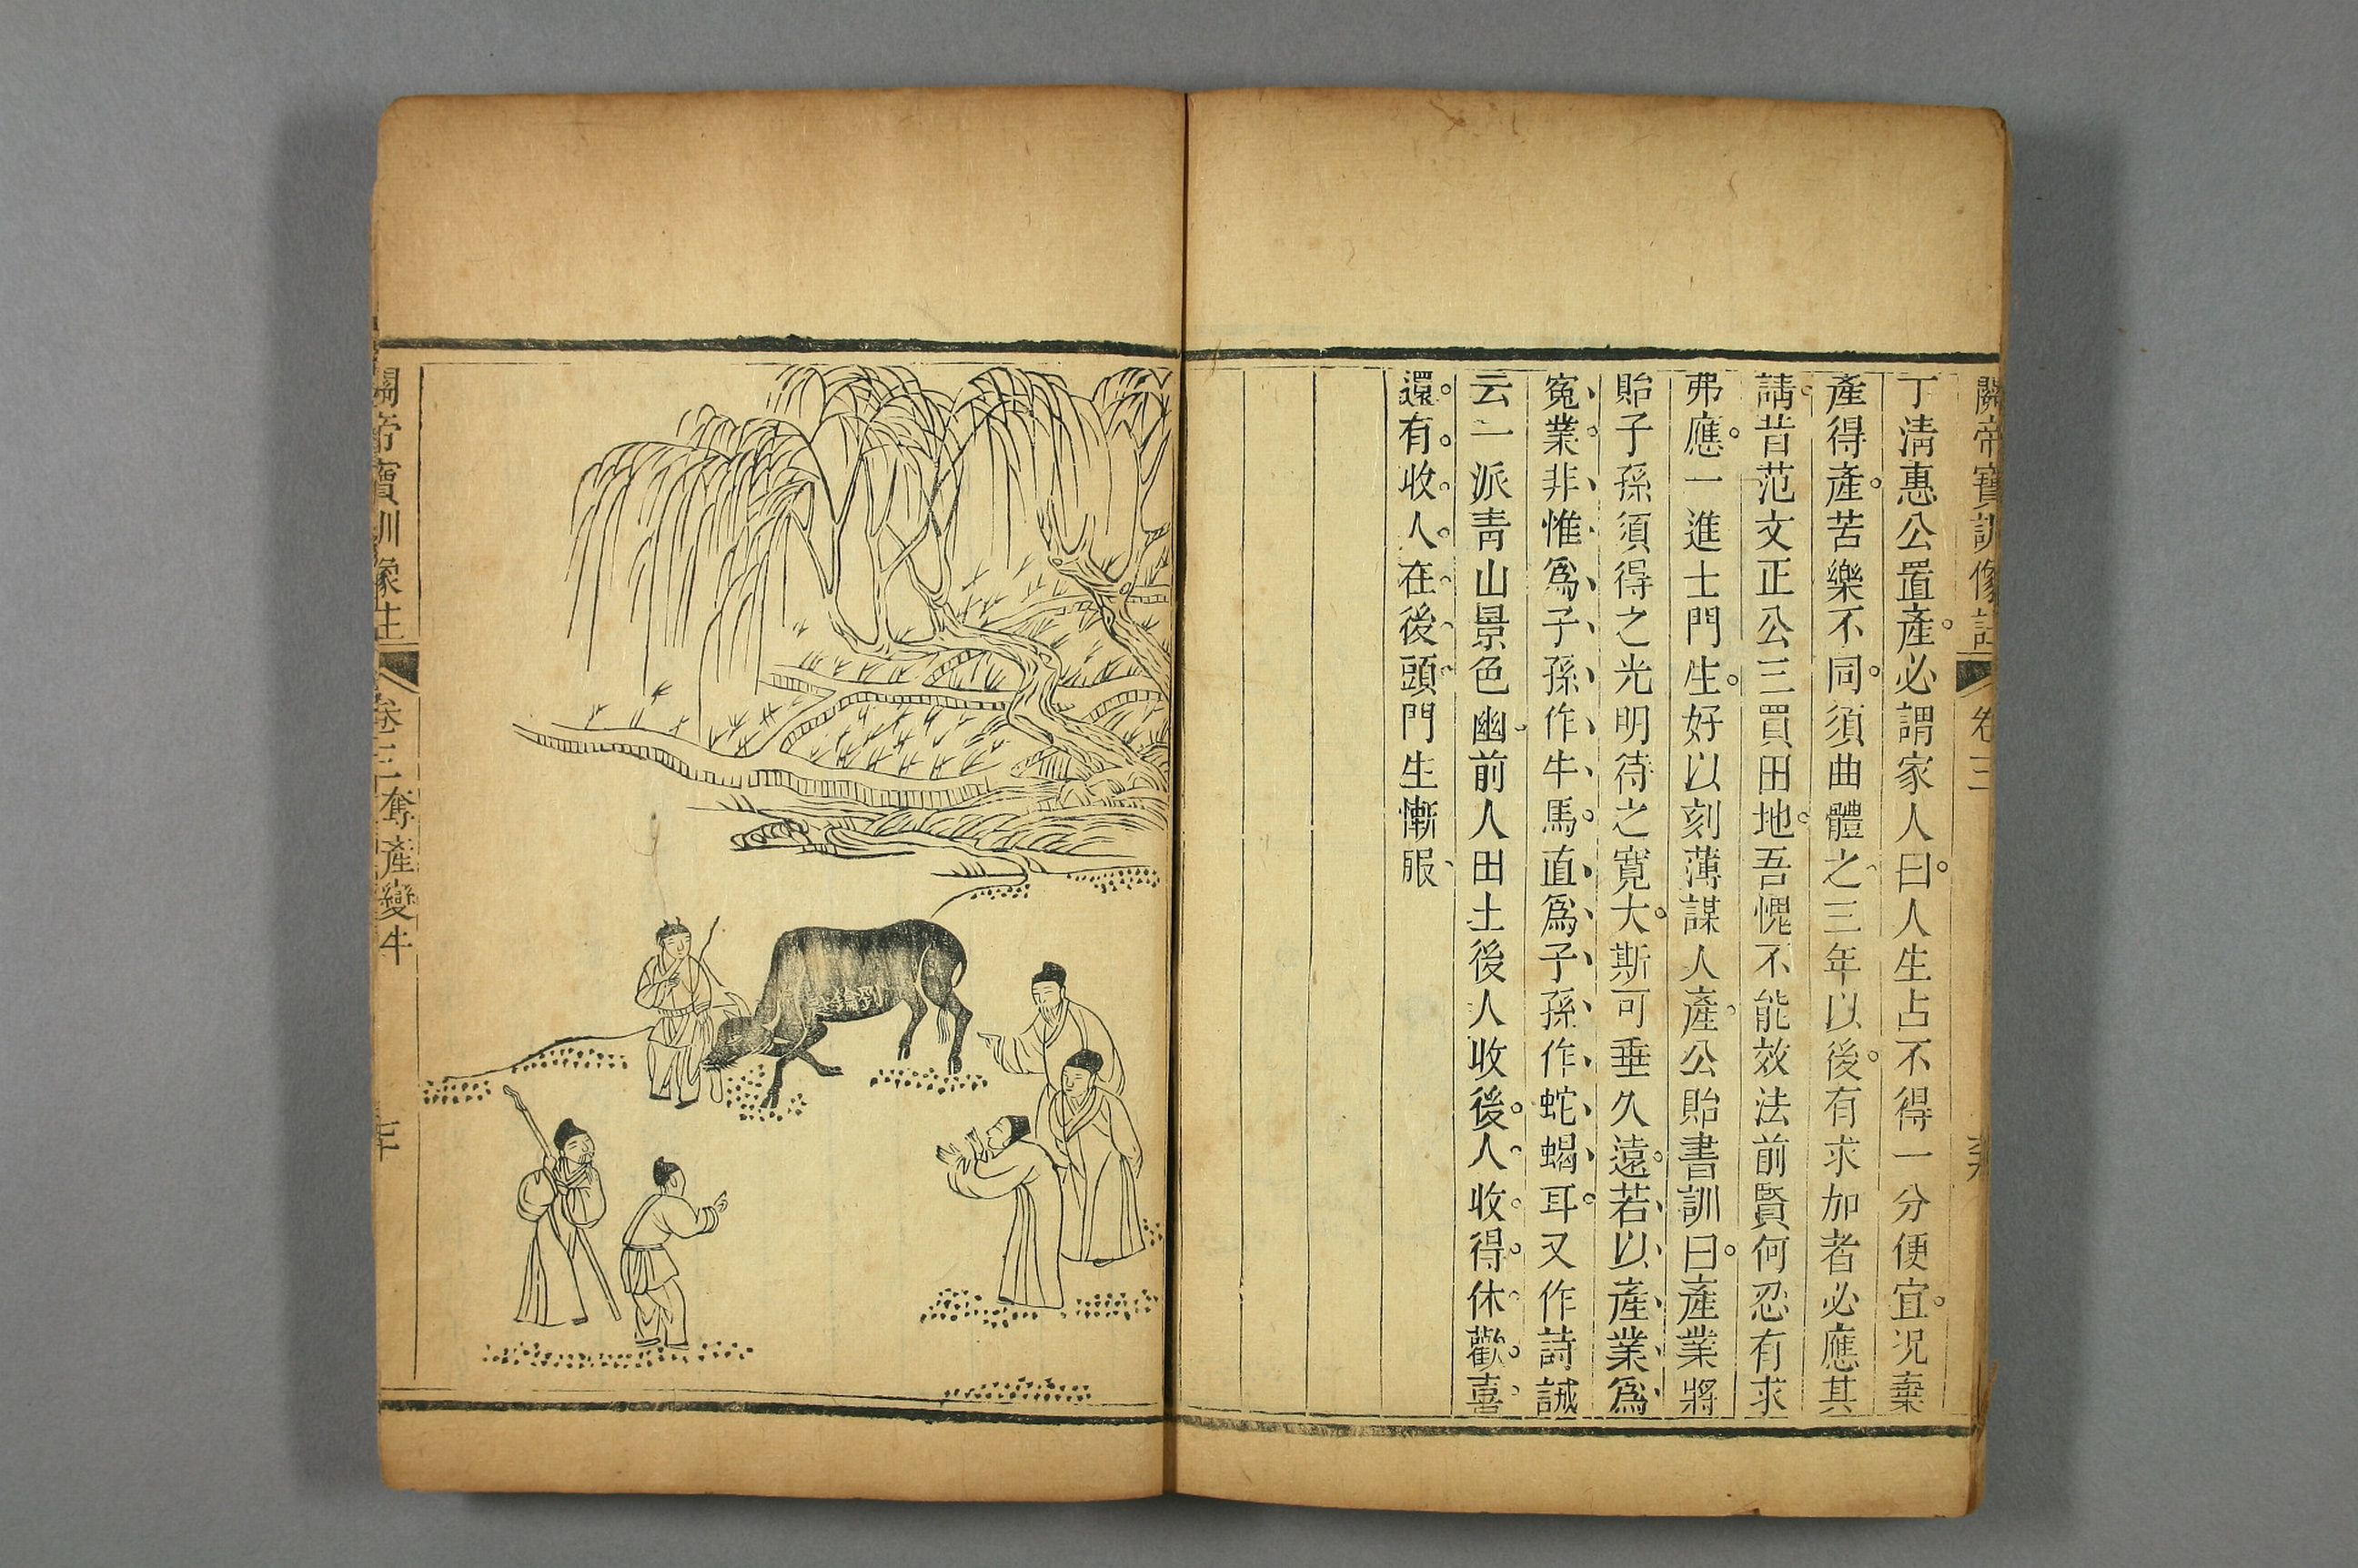 關帝寶訓像註 卷三
丁清惠公置產必謂家人曰人生占不得一分便宜况棄
產得產苦樂不同須曲體之三年以後有求加者必應其
請昔范文正公三買田地吾愧不能效法前賢何忍有求
弗應一進士門生好以刻薄謀人產公貽書訓曰產業將
貽子孫須得之光明待之寬大斯可垂久遠若以產業爲
冤業非惟爲子孫作牛馬直爲子孫作蛇蝎耳又作詩誡
云一派青山景色幽前人田土後人收後人收得休歡喜
還有收人在後頭門生慚服
關帝寶訓像註 卷三 奪產變牛